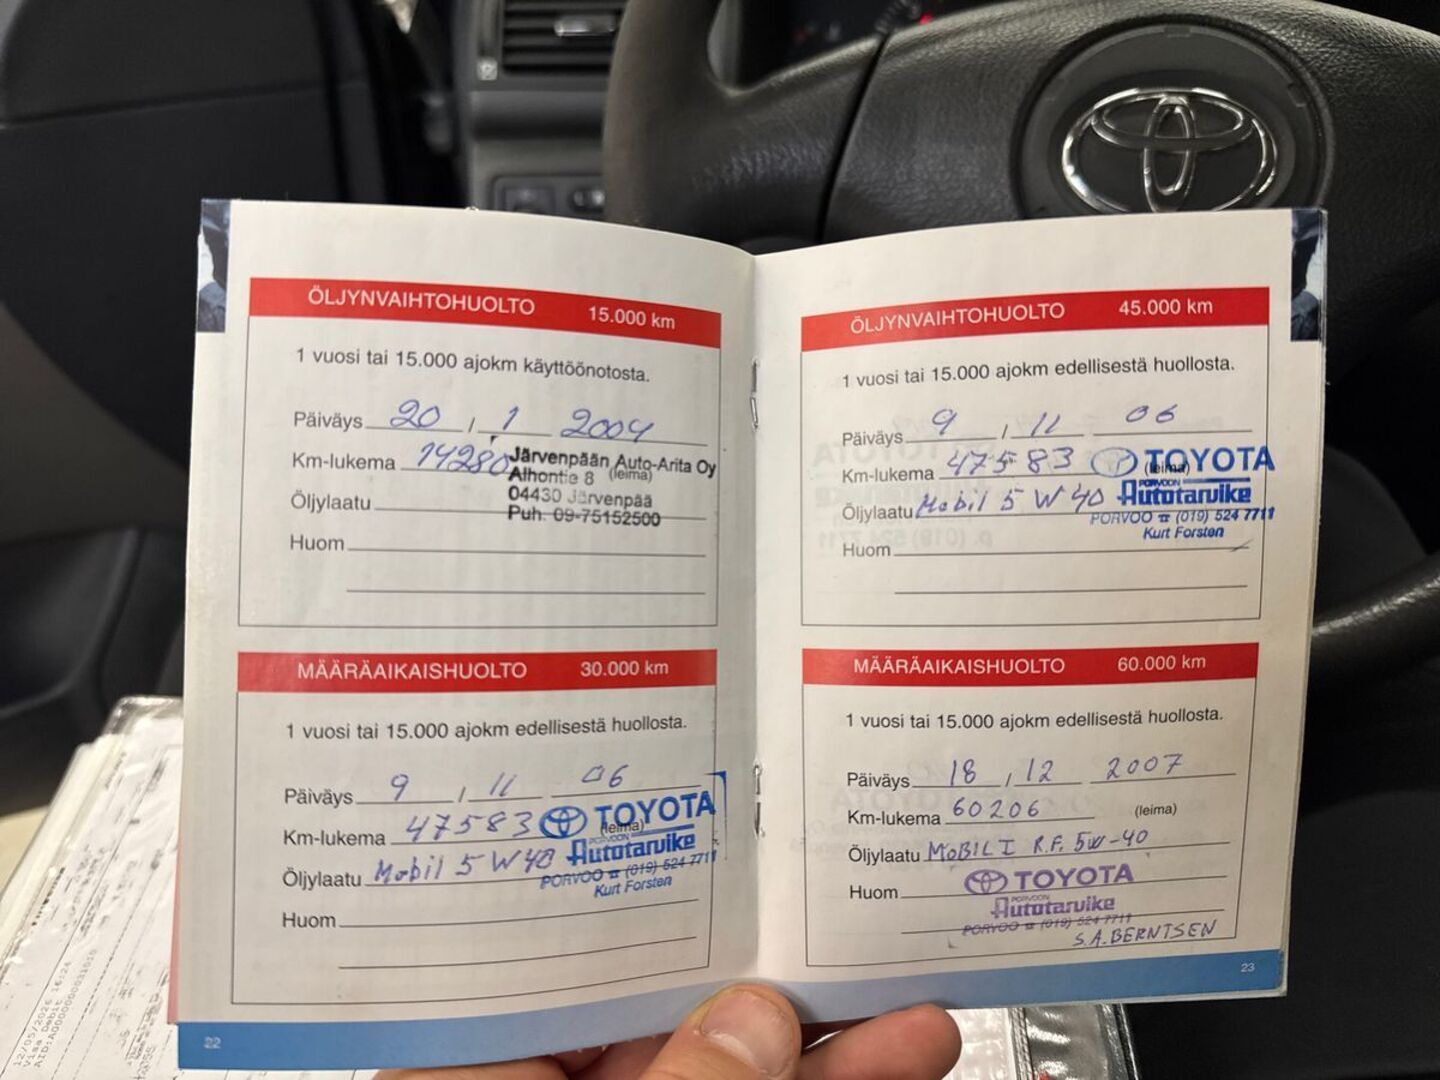 ÖLJYNVAIHTOHUOLTO 15.000 km
1 vuosi tai 15.000 ajokm käyttöönotosta.
Päiväys 20 / 1 2004
Km-lukema 14280
Järvenpään Auto-Arita Oy
Alhontie 8 (leima)
04430 Järvenpää
Puh. 09-75152500
Öljylaatu
Huom
MÄÄRÄAIKAISHUOLTO 30.000 km
1 vuosi tai 15.000 ajokm edellisestä huollosta.
Päiväys 9 / 11 06
Km-lukema 47583 (leima)
TOYOTA
PORVOON
Autotarvike
PORVOO ☎ (019) 524 7711
Kurt Forsten
Öljylaatu Mobil 5 W 40
Huom
22
ÖLJYNVAIHTOHUOLTO 45.000 km
1 vuosi tai 15.000 ajokm edellisestä huollosta.
Päiväys 9 / 11 06
Km-lukema 47583 (leima)
TOYOTA
PORVOON
Autotarvike
PORVOO ☎ (019) 524 7711
Kurt Forsten
Öljylaatu Mobil 5 W 40
Huom
MÄÄRÄAIKAISHUOLTO 60.000 km
1 vuosi tai 15.000 ajokm edellisestä huollosta.
Päiväys 18 / 12 2007
Km-lukema 60206 (leima)
Öljylaatu MOBIL I R.F. 5W-40
Huom
TOYOTA
PORVOON
Autotarvike
PORVOO ☎ (019) 524 7711
S.A. BERNTSEN
23
12/05/2026 16:24
Visa Debit
AID:A0000000031010